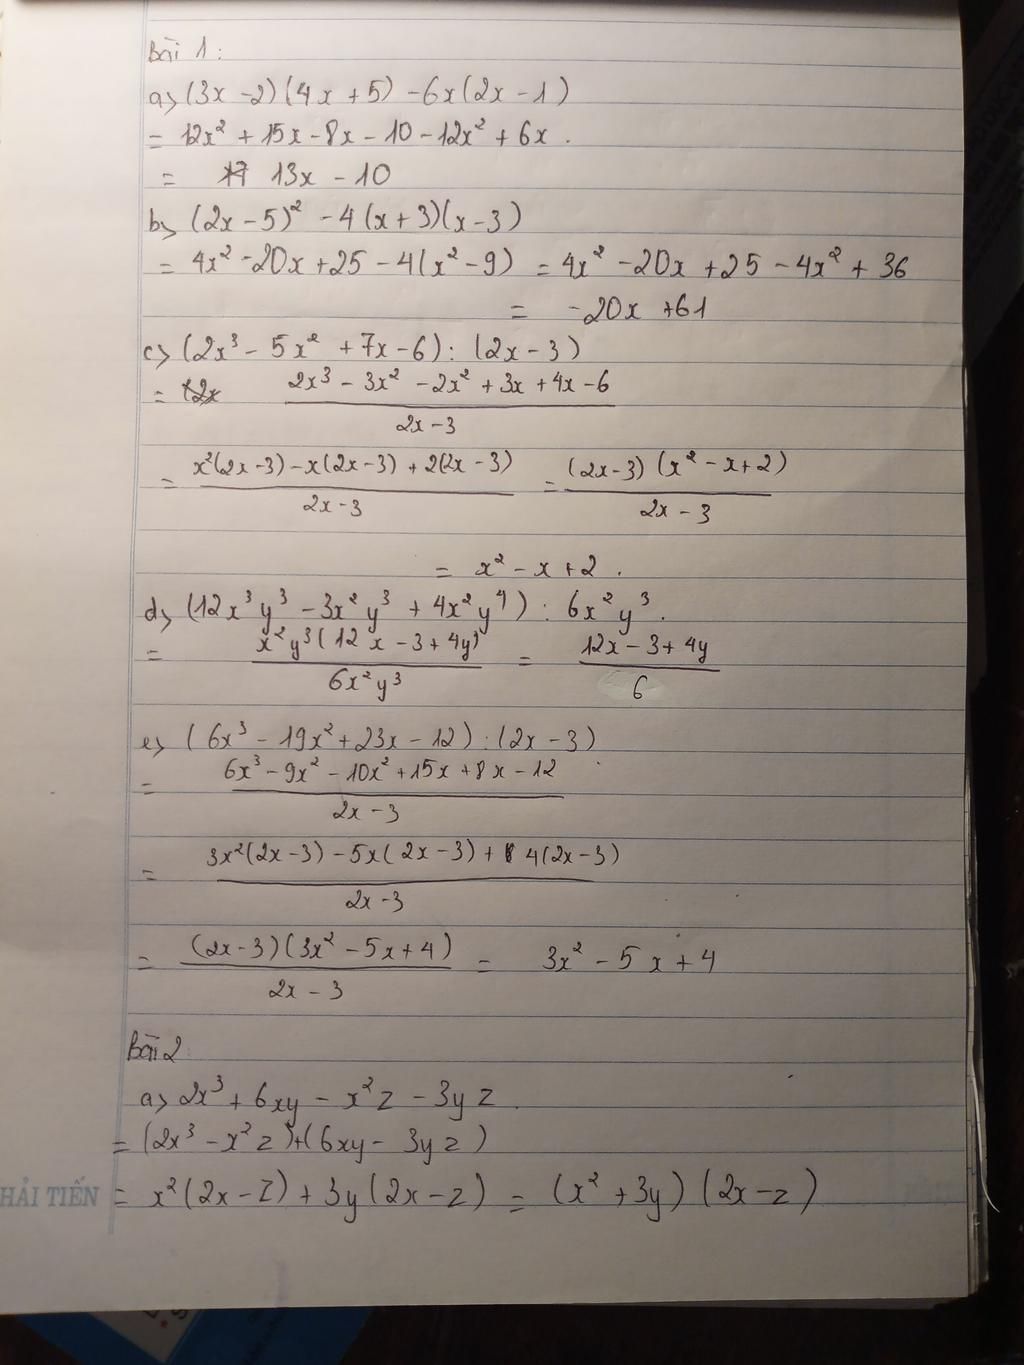 Bài 1:
a> (3x - 2)(4x + 5) - 6x(2x - 1)
= 12x² + 15x - 8x - 10 - 12x² + 6x.
= 13x - 10
b> (2x - 5)² - 4(x + 3)(x - 3)
= 4x² - 20x + 25 - 4(x² - 9) = 4x² - 20x + 25 - 4x² + 36
= -20x + 61
c> (2x³ - 5x² + 7x - 6) : (2x - 3)
= 2x³ - 3x² - 2x² + 3x + 4x - 6
2x - 3
= x²(2x - 3) - x(2x - 3) + 2(2x - 3) = (2x - 3)(x² - x + 2)
2x - 3 2x - 3
= x² - x + 2.
d> (12x³y³ - 3x²y³ + 4x²y⁴) : 6x²y³.
= x²y³(12x - 3 + 4y) = 12x - 3 + 4y
6x²y³ 6
e> (6x³ - 19x² + 23x - 12) : (2x - 3)
= 6x³ - 9x² - 10x² + 15x + 8x - 12
2x - 3
= 3x²(2x - 3) - 5x(2x - 3) + 4(2x - 3)
2x - 3
= (2x - 3)(3x² - 5x + 4) = 3x² - 5x + 4
2x - 3
Bài 2
a> 2x³ + 6xy - x²z - 3yz.
= (2x³ - x²z) + (6xy - 3yz)
HẢI TIẾN = x²(2x - z) + 3y(2x - z) = (x² + 3y)(2x - z)